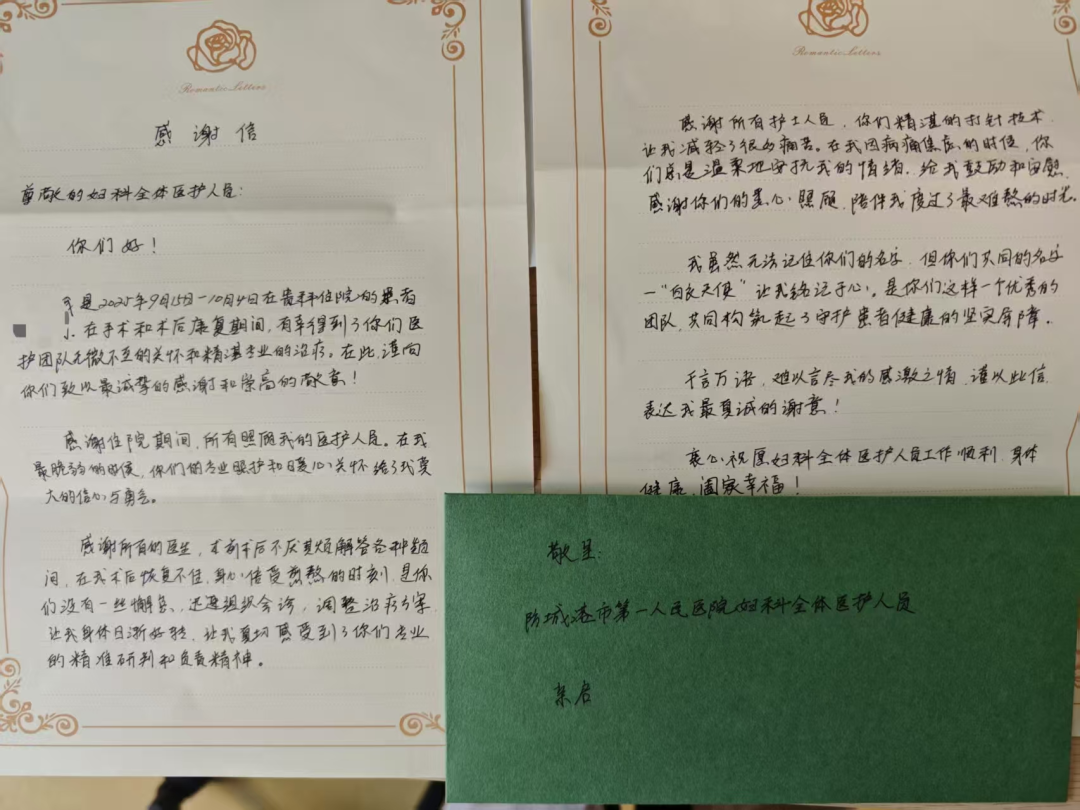 Romantic Letters
感谢信
尊敬的妇科全体医护人员：
你们好！
我是2025年9月15日-10月4日在贵科住院的患者
在手术和术后康复期间，有幸得到了你们医
护团队无微不至的关怀和精湛专业的治疗。在此，谨向
你们致以最诚挚的感谢和崇高的敬意！
感谢住院期间，所有照顾我的医护人员。在我
最脆弱的时候，你们的专业照护和暖心关怀给了我莫
大的信心与勇气。
感谢所有的医生，术前术后不厌其烦解答各种疑
问，在我术后恢复不佳，身心倍受煎熬的时刻，是你
们没有一丝懈怠，迅速组织会诊，调整治疗方案，
让我身体日渐好转，让我真切感受到了你们专业
的精准研判和负责精神。
Romantic Letters
感谢所有护士人员，你们精湛的打针技术，
让我减轻了很多痛苦。在我因病痛焦虑的时候，你
们总是温柔地安抚我的情绪，给我鼓励和安慰，
感谢你们的悉心照顾，陪伴我度过了最难熬的时光。
我虽然无法记住你们的名字，但你们共同的名字
—“白衣天使”让我铭记于心。是你们这样一个优秀的
团队，共同构筑起了守护患者健康的坚实屏障。
千言万语，难以言尽我的感激之情，谨以此信，
表达我最真诚的谢意！
衷心祝愿妇科全体医护人员工作顺利，身体
健康，阖家幸福！
敬呈：
防城港市第一人民医院妇科全体医护人员
亲启